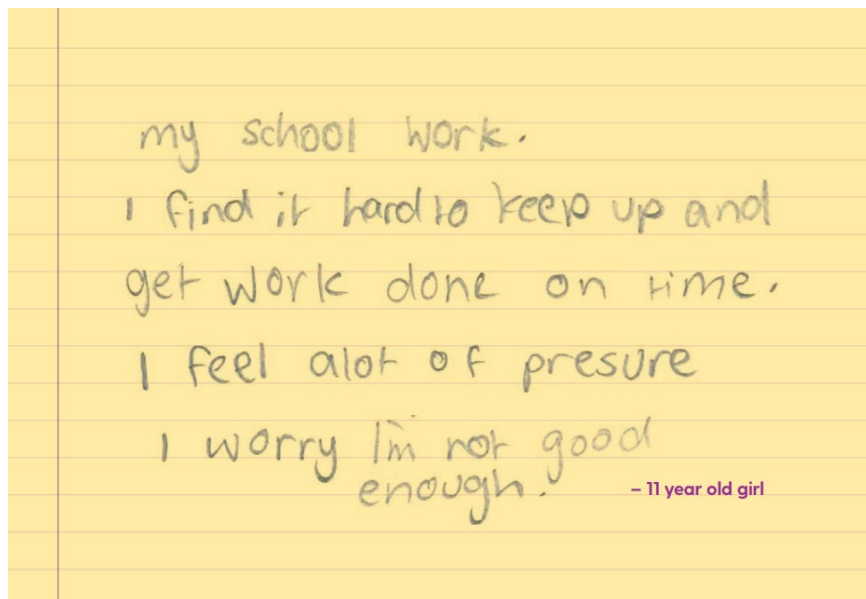 my school work.
I find it hard to keep up and
get work done on time.
I feel alot of presure
I worry I'm not good
enough.
– 11 year old girl